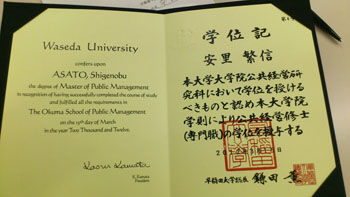 Waseda University
confers upon
ASATO, Shigenobu
the degree of Master of Public Management
in recognition of having successfully completed the course of study
and fulfilled all the requirements in
The Okuma School of Public Management
on the 15th day of March
in the year Two Thousand and Twelve.
Kaoru Kamata
K. Kamata
President
学位記
安里 繁信
本大学大学院公共経営研
究科において学位を授ける
べきものと認め本大学院
学則により公共経営修士
(専門職)の学位を授与する
早稲田大学総長 鎌田 薫